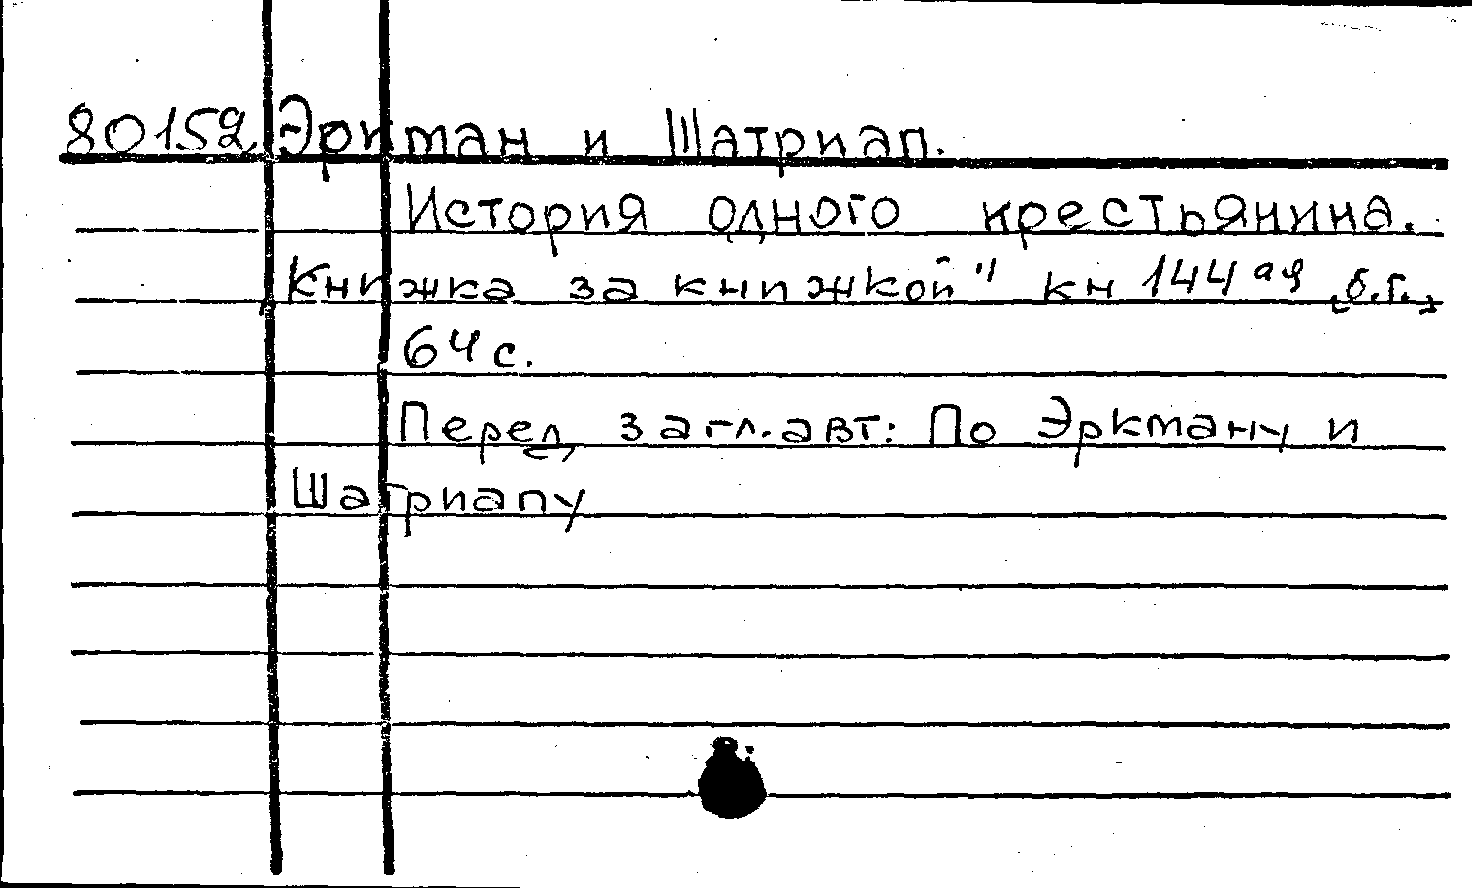 80152 Эркман и Шатриап.
История одного крестьянина.
„Книжка за книжкой" кн 144ая [б.г.,]
64 с.
Перед загл. авт: По Эркману и
Шатриапу